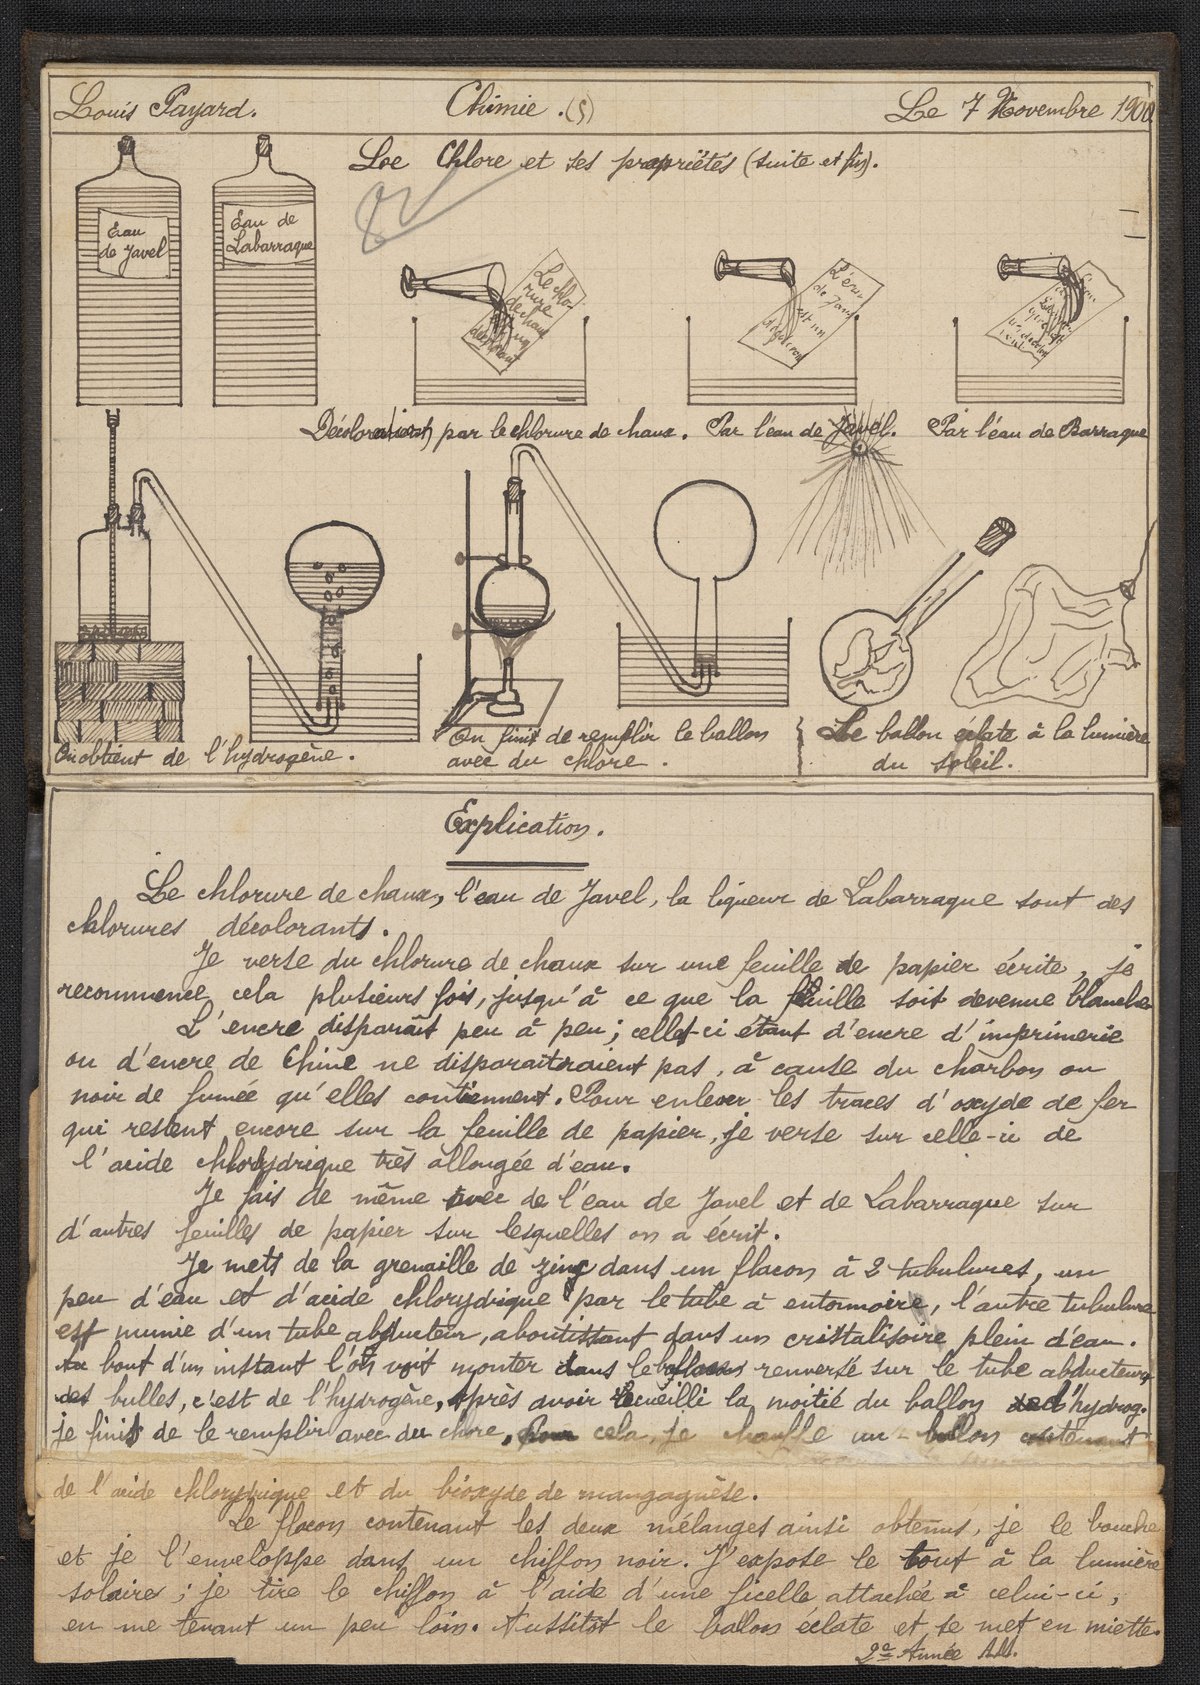 Louis Payard. Chimie. (5) Le 7 Novembre 1900
Le Chlore et ses propriétés (suite et fin).
Eau
de Javel
Eau de
Labarraque
Le chlo-
rure
de chaux
est un
décolorant
L'eau
de Javel
est un
décolorant
Décoloration par le chlorure de chaux. Par l'eau de Javel. Par l'éau de Barraque
On obtient de l'hydrogène.
On finit de remplir le ballon
avec du chlore.
Le ballon éclate à la lumière
du soleil.
Explication.
Le chlorure de chaux, l'eau de Javel, la liqueur de Labarraque sont des
chlorures décolorants.
Je verse du chlorure de chaux sur une feuille de papier écrite, je
recommence cela plusieurs fois, jusqu'à ce que la feuille soit devenue blanche
L'encre disparaît peu à peu; celle-ci étant d'encre d'imprimerie
ou d'encre de Chine ne disparaitraient pas, à cause du charbon ou
noir de fumée qu'elles contiennent. Pour enlever les traces d'oxyde de fer
qui restent encore sur la feuille de papier, je verse sur celle-ci de
l'acide chlorydrique très allongée d'eau.
Je fais de même avec de l'eau de Javel et de Labarraque sur
d'autres feuilles de papier sur lesquelles on a écrit.
Je mets de la grenaille de zing dans un flacon à 2 tubulures, un
peu d'eau et d'acide chlorydrique par le tube à entonnoire, l'autre tubulure
est munie d'un tube abducteur, aboutissant dans un cristalisoire plein d'eau.
Au bout d'un instant l'on voit monter dans le ballon renversé sur le tube abducteur
des bulles, c'est de l'hydrogène, après avoir recueilli la moitié du ballon d'hydrog.
je finis de le remplir avec du chore, pour cela, je chauffe un ballon contenant
de l'acide chlorydrique et du bioxyde de mangagnèse.
Le flacon contenant les deux mélanges ainsi obtenus, je le bouche
et je l'enveloppe dans un chiffon noir. J'expose le tout à la lumière
solaire; je tire le chiffon à l'aide d'une ficelle attachée à celui-ci,
en me tenant un peu loin. Aussitôt le ballon éclate et se met en miette.
2e Année